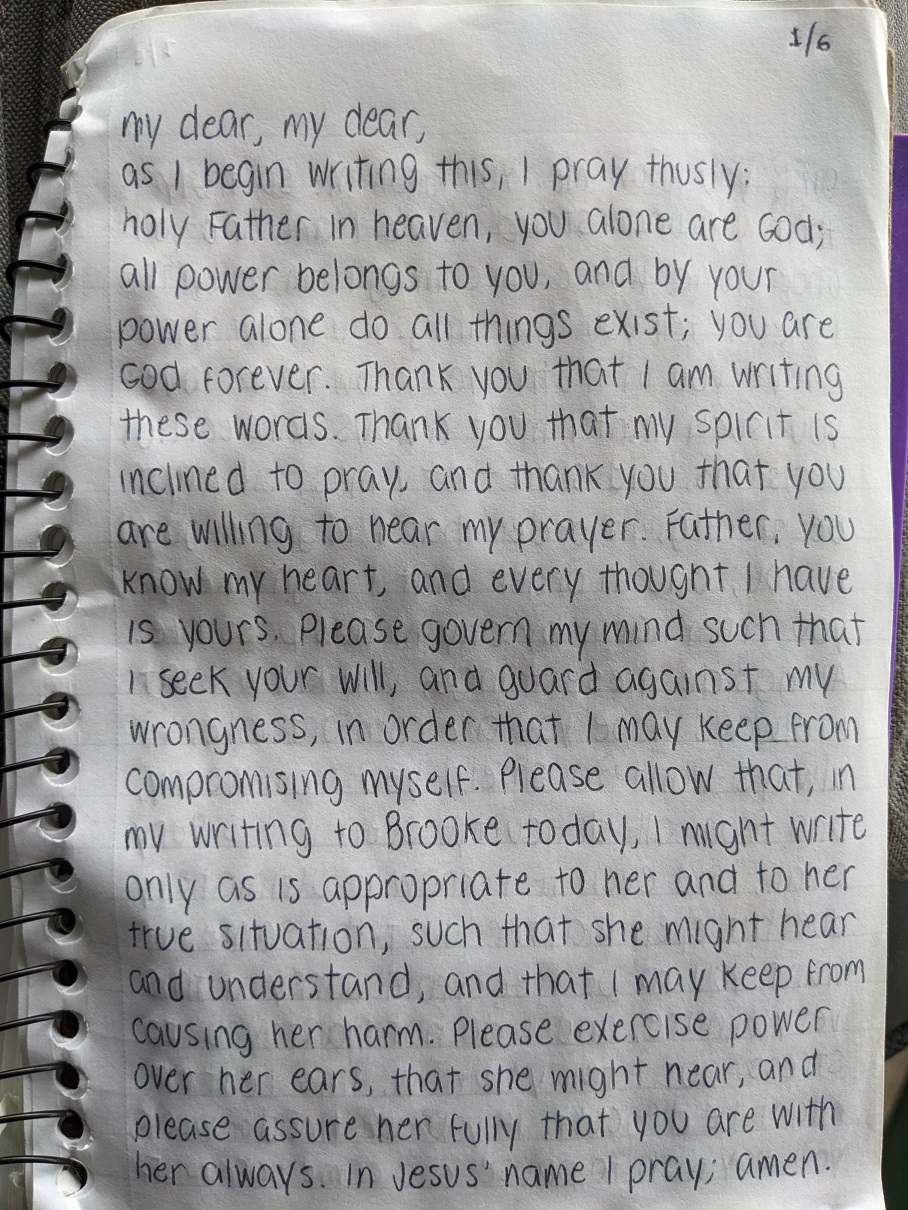 1/6
my dear, my dear,
as I begin writing this, I pray thusly:
holy Father in heaven, you alone are God;
all power belongs to you, and by your
power alone do all things exist; you are
God forever. Thank you that I am writing
these words. Thank you that my spirit is
inclined to pray, and thank you that you
are willing to hear my prayer. Father, you
know my heart, and every thought I have
is yours. Please govern my mind such that
I seek your will, and guard against my
wrongness, in order that I may keep from
compromising myself. Please allow that, in
my writing to Brooke today, I might write
only as is appropriate to her and to her
true situation, such that she might hear
and understand, and that I may keep from
causing her harm. Please exercise power
over her ears, that she might hear, and
please assure her fully that you are with
her always. In Jesus' name I pray; amen.